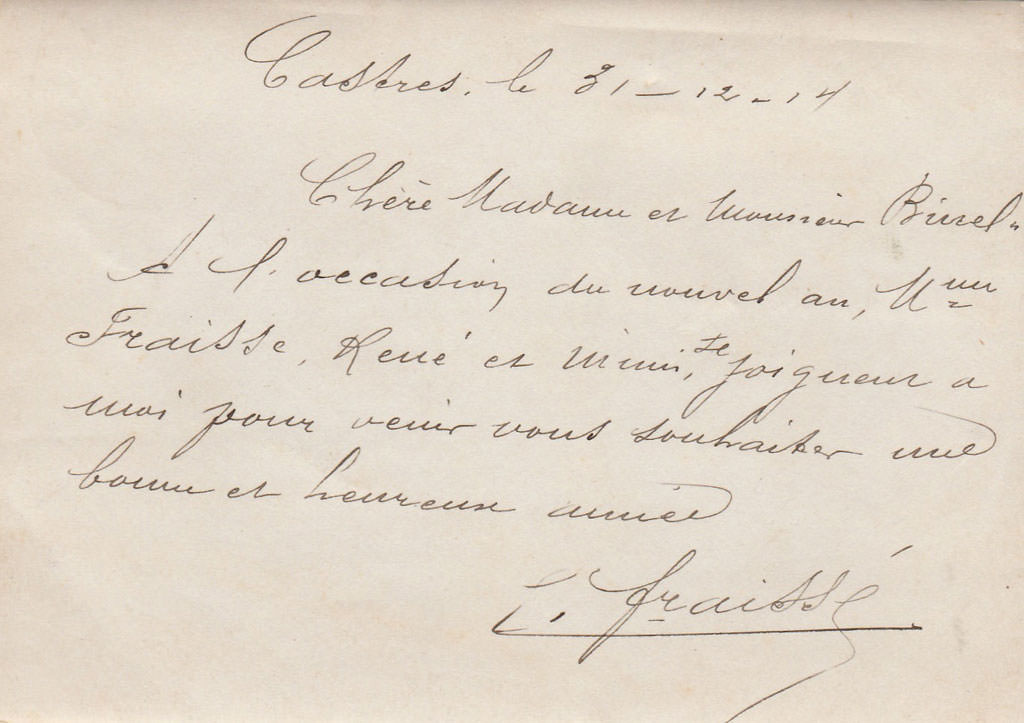 Castres, le 31-12-14
Chère Madame et Monsieur
A l'occasion du nouvel an, Mme
Fraisse, René et Mimi, se joignent a
moi pour venir vous souhaiter une
bonne et heureuse année
Fraissé